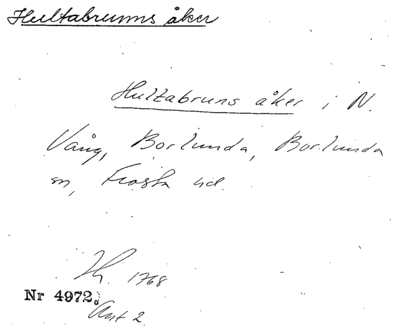 Hultabrunns åker
Hultabruns åker i N.
Vång, Borlunda, Borlunda
sn, Frosta hd.
1768
Nr 4972.
Akt 2.